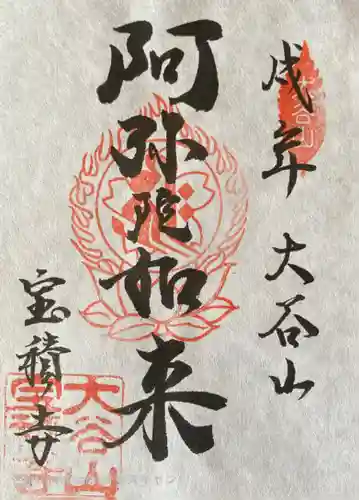 戌年 大谷山
阿弥陀如来
宝積寺
大谷山
大谷山